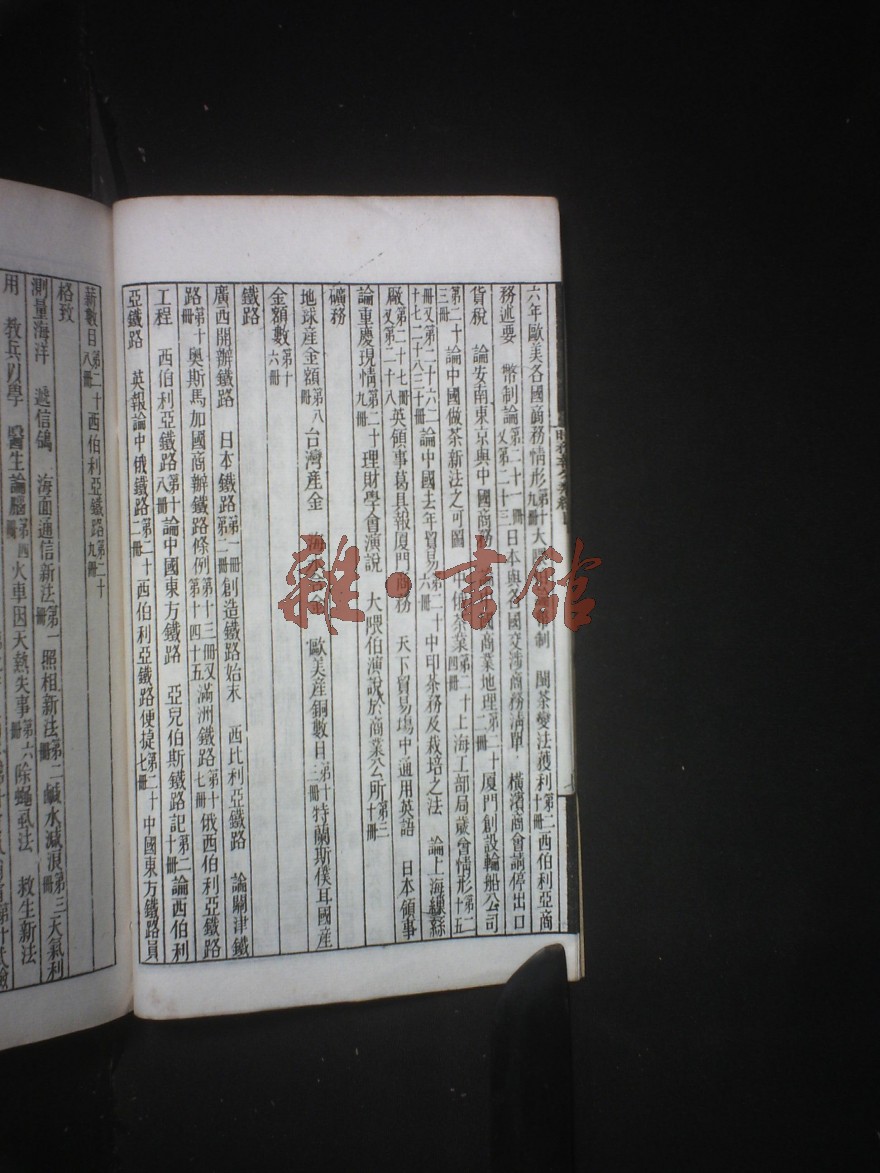 六年歐美各國商務情形第十九冊大隈 制 閩茶變法獲利第二十冊西伯利亞商
務述要 幣制論第二十一冊又第二十三日本與各國交涉商務清單 橫濱商會請停出口
貨稅 論安南東京與中國商務 國商業地理第二十二冊廈門創設輪船公司
第二十三冊論中國做茶新法之可圖 中 茶業第二十四冊上海工部局歲會情形第二十五
冊又第二十六二十七二十八三十冊論中國去年貿易第二十六冊中印茶務及栽培之法 論上海繅絲
廠第二十七冊又第二十八英領事葛具報廈門商務 天下貿易場中通用英語 日本領事
論重慶現情第二十九冊理財學會演說 大隈伯演說於商業公所第三十冊
礦務
地球產金額第八冊台灣產金 歐美產銅數目第十三冊特蘭斯僕耳國產
金額數第十六冊
鐵路
廣西開辦鐵路 日本鐵路第一冊第二創造鐵路始末 西比利亞鐵路 論關津鐵
路第十冊奧斯馬加國商辦鐵路條例第十三冊又第十四十五滿洲鐵路第十七冊俄西伯利亞鐵路
工程 西伯利亞鐵路第十八冊論中國東方鐵路 亞兒伯斯鐵路記第二十冊論西伯利
亞鐵路 英報論中俄鐵路第二十二冊西伯利亞鐵路便捷第二十七冊中國東方鐵路員
薪數目第二十八冊西伯利亞鐵路第二十九冊
格致
測量海洋 遞信鴿 海面通信新法第一冊照相新法第二冊鹹水減浪第三冊天氣利
用 教兵以學 醫生論腦第四冊火車因天熱失事第六冊除蠅蝨法 救生新法
雜·書館